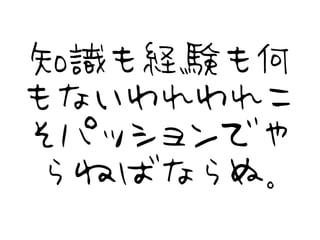 知識も経験も何
もないわれわれこ
そパッションでや
らねばならぬ。